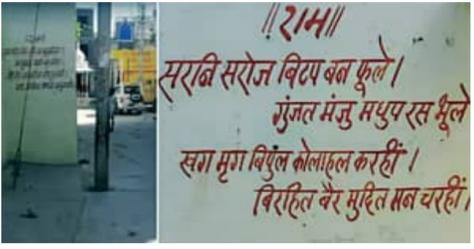 ॥राम॥
सरनि सरोज बिटप बन फूले।
गुंजत मंजु मधुप रस भूले
खग मृग बिपुल कोलाहल करहीं ।
बिरहित बैर मुदित मन चरहीं।